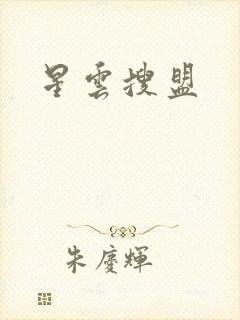 星雲搜盟
朱慶輝